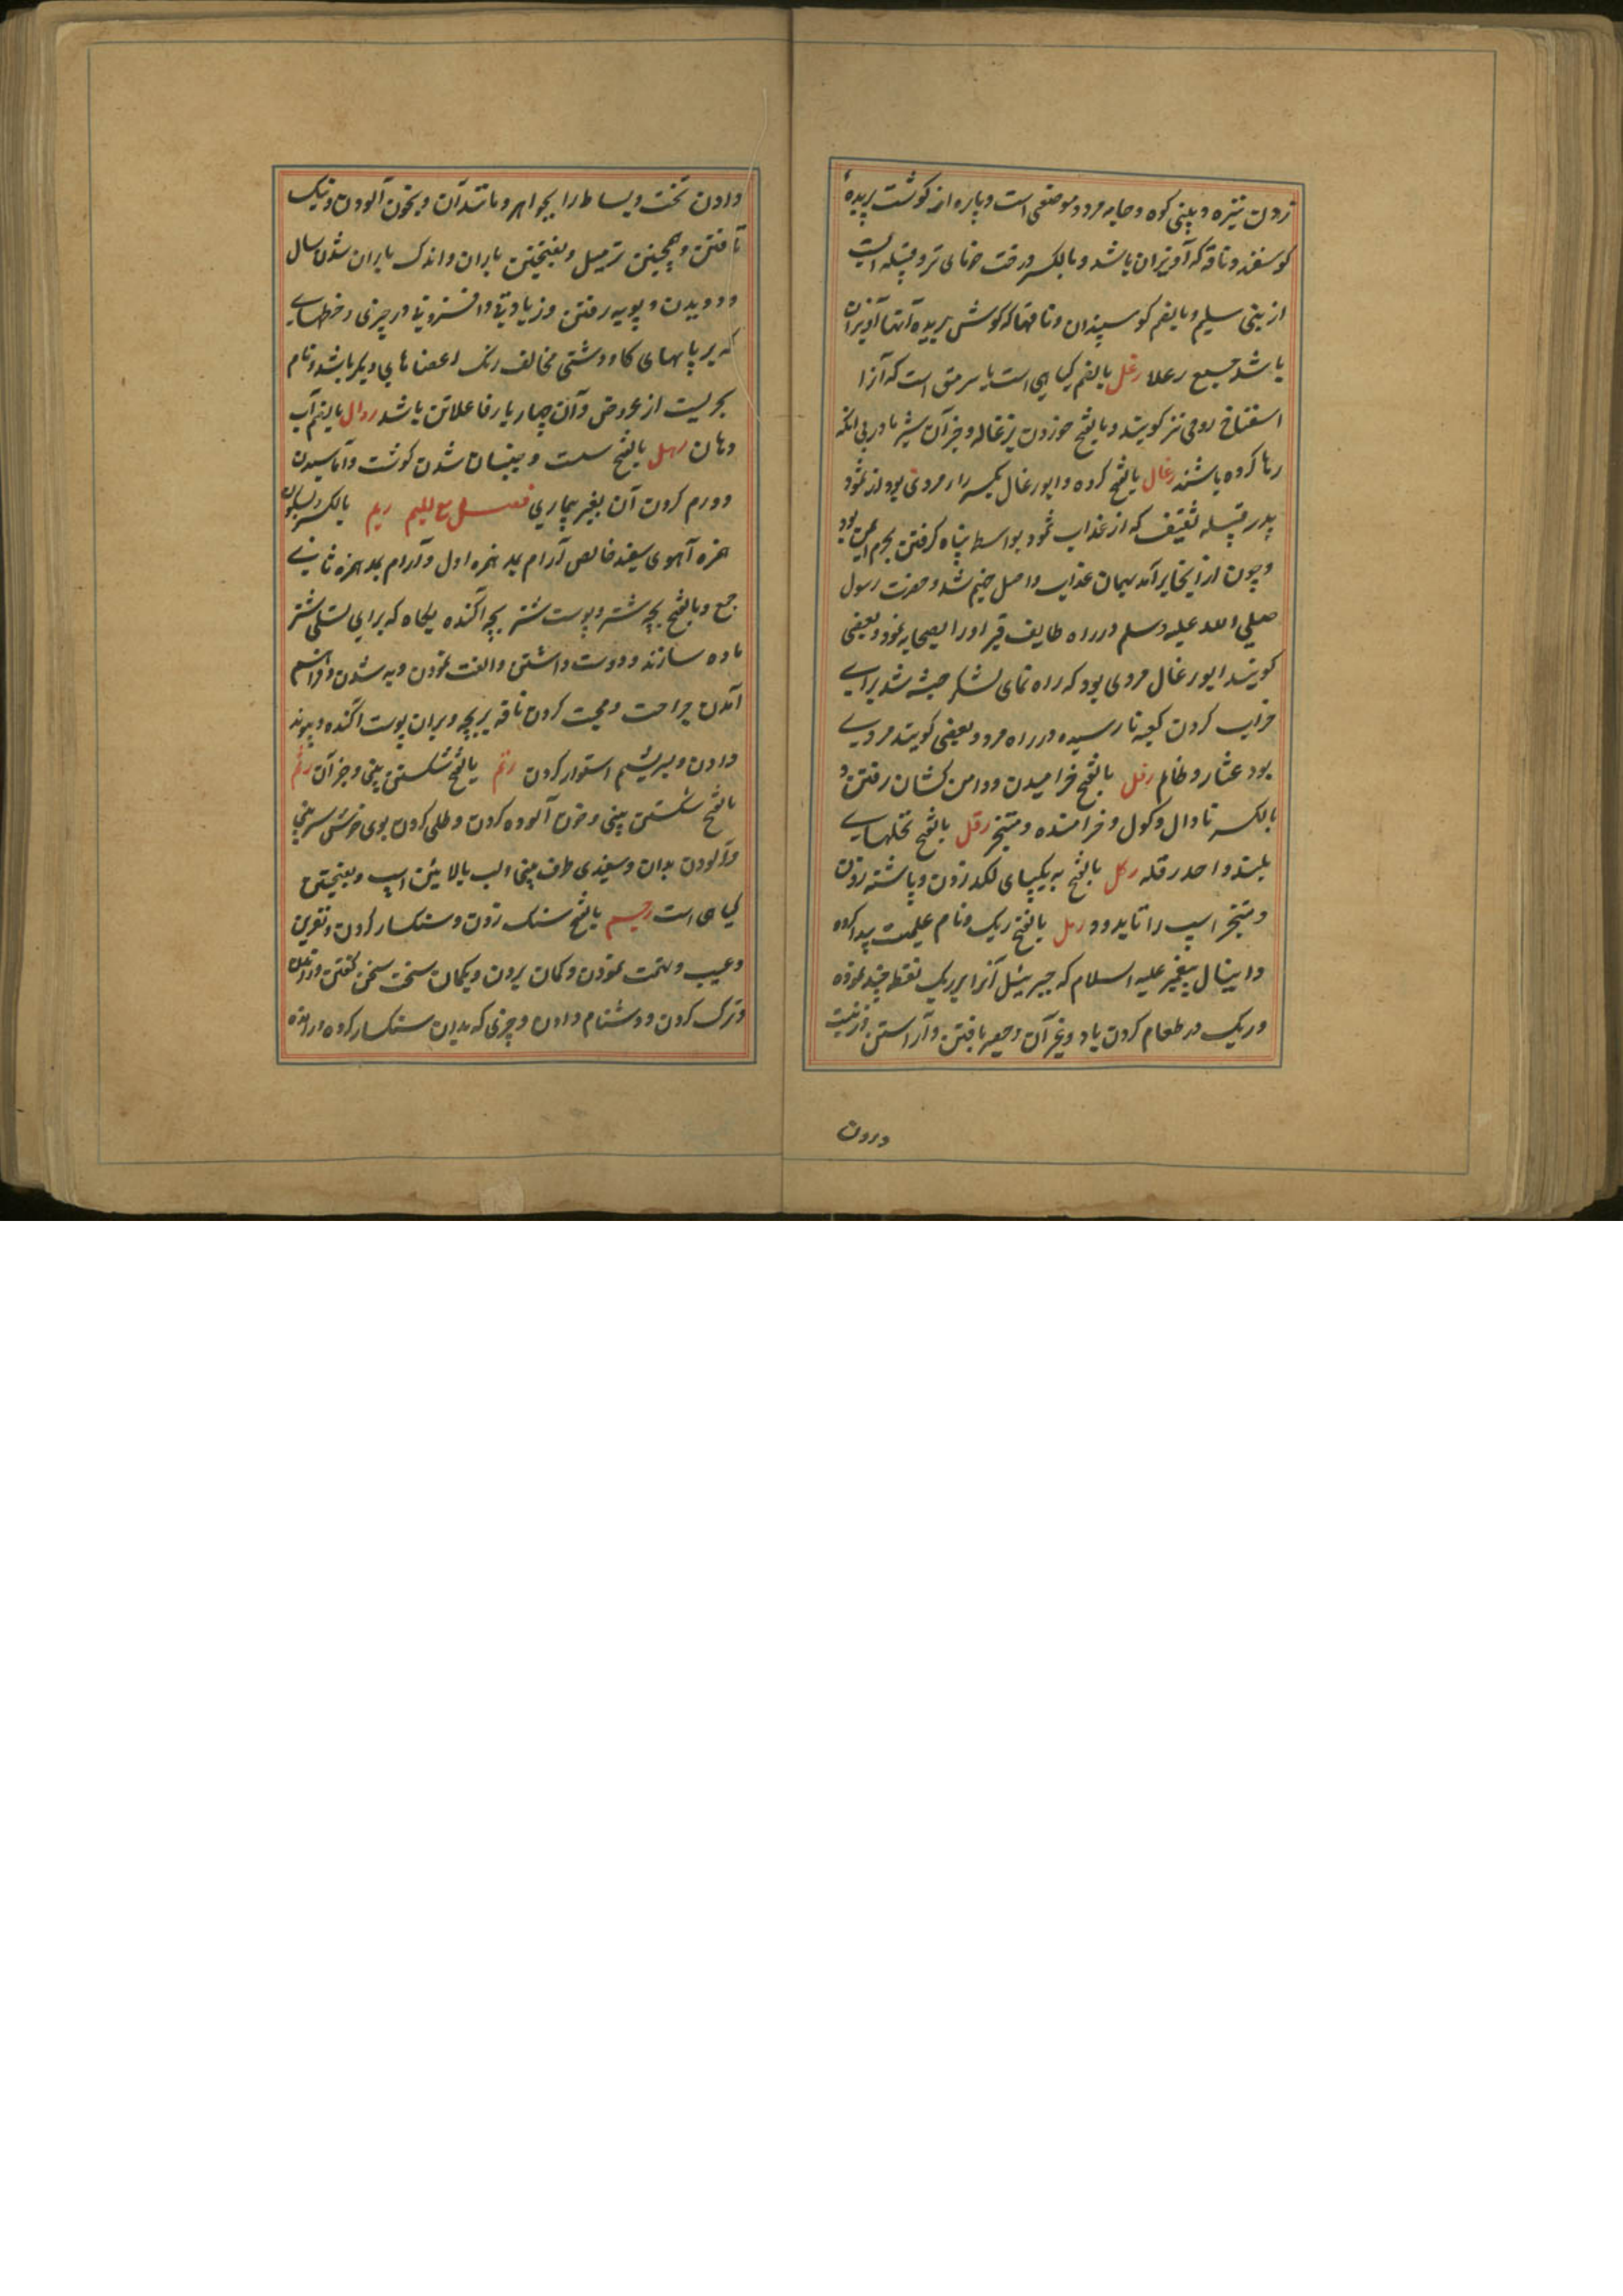 زدن نیزه و بینی کوه و جامه مرد و موضعی است و پاره از گوشت بریدهٔ
گوسفند و ناقه که آویزان باشد و بالکسر درخت خرمای نر و قبیله ایست
از بنی سلیم و بالضم گوسپندان و ناقها که گوش بریده آنها آویزان
باشد جمع رعلا رغل بالضم گیاهی است یا سرمق است که آنرا
اسفناخ رومی نیز گویند و بالفتح خوردن بزغاله و جز آن شیر مادر بی آنکه
رها کرده باشند رغال بالفتح کرده و ابورغال بکسر را مردی بود از ثمود
پدر قبیله ثقیف که از عذاب ثمود بواسطه پناه گرفتن بحرم ایمن بود
و چون از آنجا برآمد بهمان عذاب واصل جهنم شد و حضرت رسول
صلی الله علیه وسلم در راه طایف قبر او را بصحابه نمود و بعضی
گویند ابورغال مردی بود که راه نمای لشکر حبشه شد برای
خراب کردن کعبه نارسیده در راه مرد و بعضی گویند مردی
بود عشار و ظالم رفل بالفتح خرامیدن و دامن کشان رفتن و
بالکسر نادان و کول و خرامنده و متبختر رقل بالفتح نخلهای
بلند واحد رقله رکل بالفتح به یکپای لکد زدن و پاشنه زدن
اسپ را تا بدود رمل بالفتح ریک و نام علمیست پیدا کرده
دانیال پیغمبر علیه السلام که جبرئیل آنرا بر ریک نقطه چند نموده
و ریک در طعام کردن یا در غیر آن و حصیر بافتن و آراستن و زینت
درون
دادن تخت و بساط را بجواهر و مانند آن و بخون آلودن و تنک
بافتن و همچنین ترمیل و بفتحتین باران و اندک باران شدن سال
و دویدن و پویه رفتن و زیادتی و افزونی در چیزی و خطهای
که بر پایهای گاو دشتی مخالف رنک اعضاهای دیگر باشد و نام
بحریست از عروض و آن چهار بار فاعلاتن باشد روال بالضم آب
دهان رهل بالفتح سست و جنبان شدن گوشت و آماسیدن
و ورم کردن آن بغیر بیماری فصل مع المیم ریم بالکسر و سکون
همزه آهوی سفید خالص آرام بمد همزه اول و آرام بمد همزه ثانی
جمع و بالفتح بچه شتر و پوست شتر بچه آکنده بکاه که برای تسلی شتر
ماده سازند و دوست داشتن و الفت نمودن و به شدن و فراهم
آمدن جراحت و محبت کردن ناقه بر بچه و بران پوست آکنده و پیوند
دادن و سریشم استوار کردن رتم بالفتح شکستن بینی و جز آن رثم
بالفتح شکستن بینی و خون آلوده کردن و طلی کردن بوی خوش سر بینی
و آلودن بدان و سفیدی طرف بینی و لب بالائین اسپ و بفتحتین
گیاهی است رجم بالفتح سنک زدن و سنکسار کردن و نفرین
و عیب و تهمت نمودن و گمان بردن و بگمان سخت سخن گفتن و راندن
و ترک کردن و دشنام دادن و چیزی که بدان سنکسار کرده و رانده